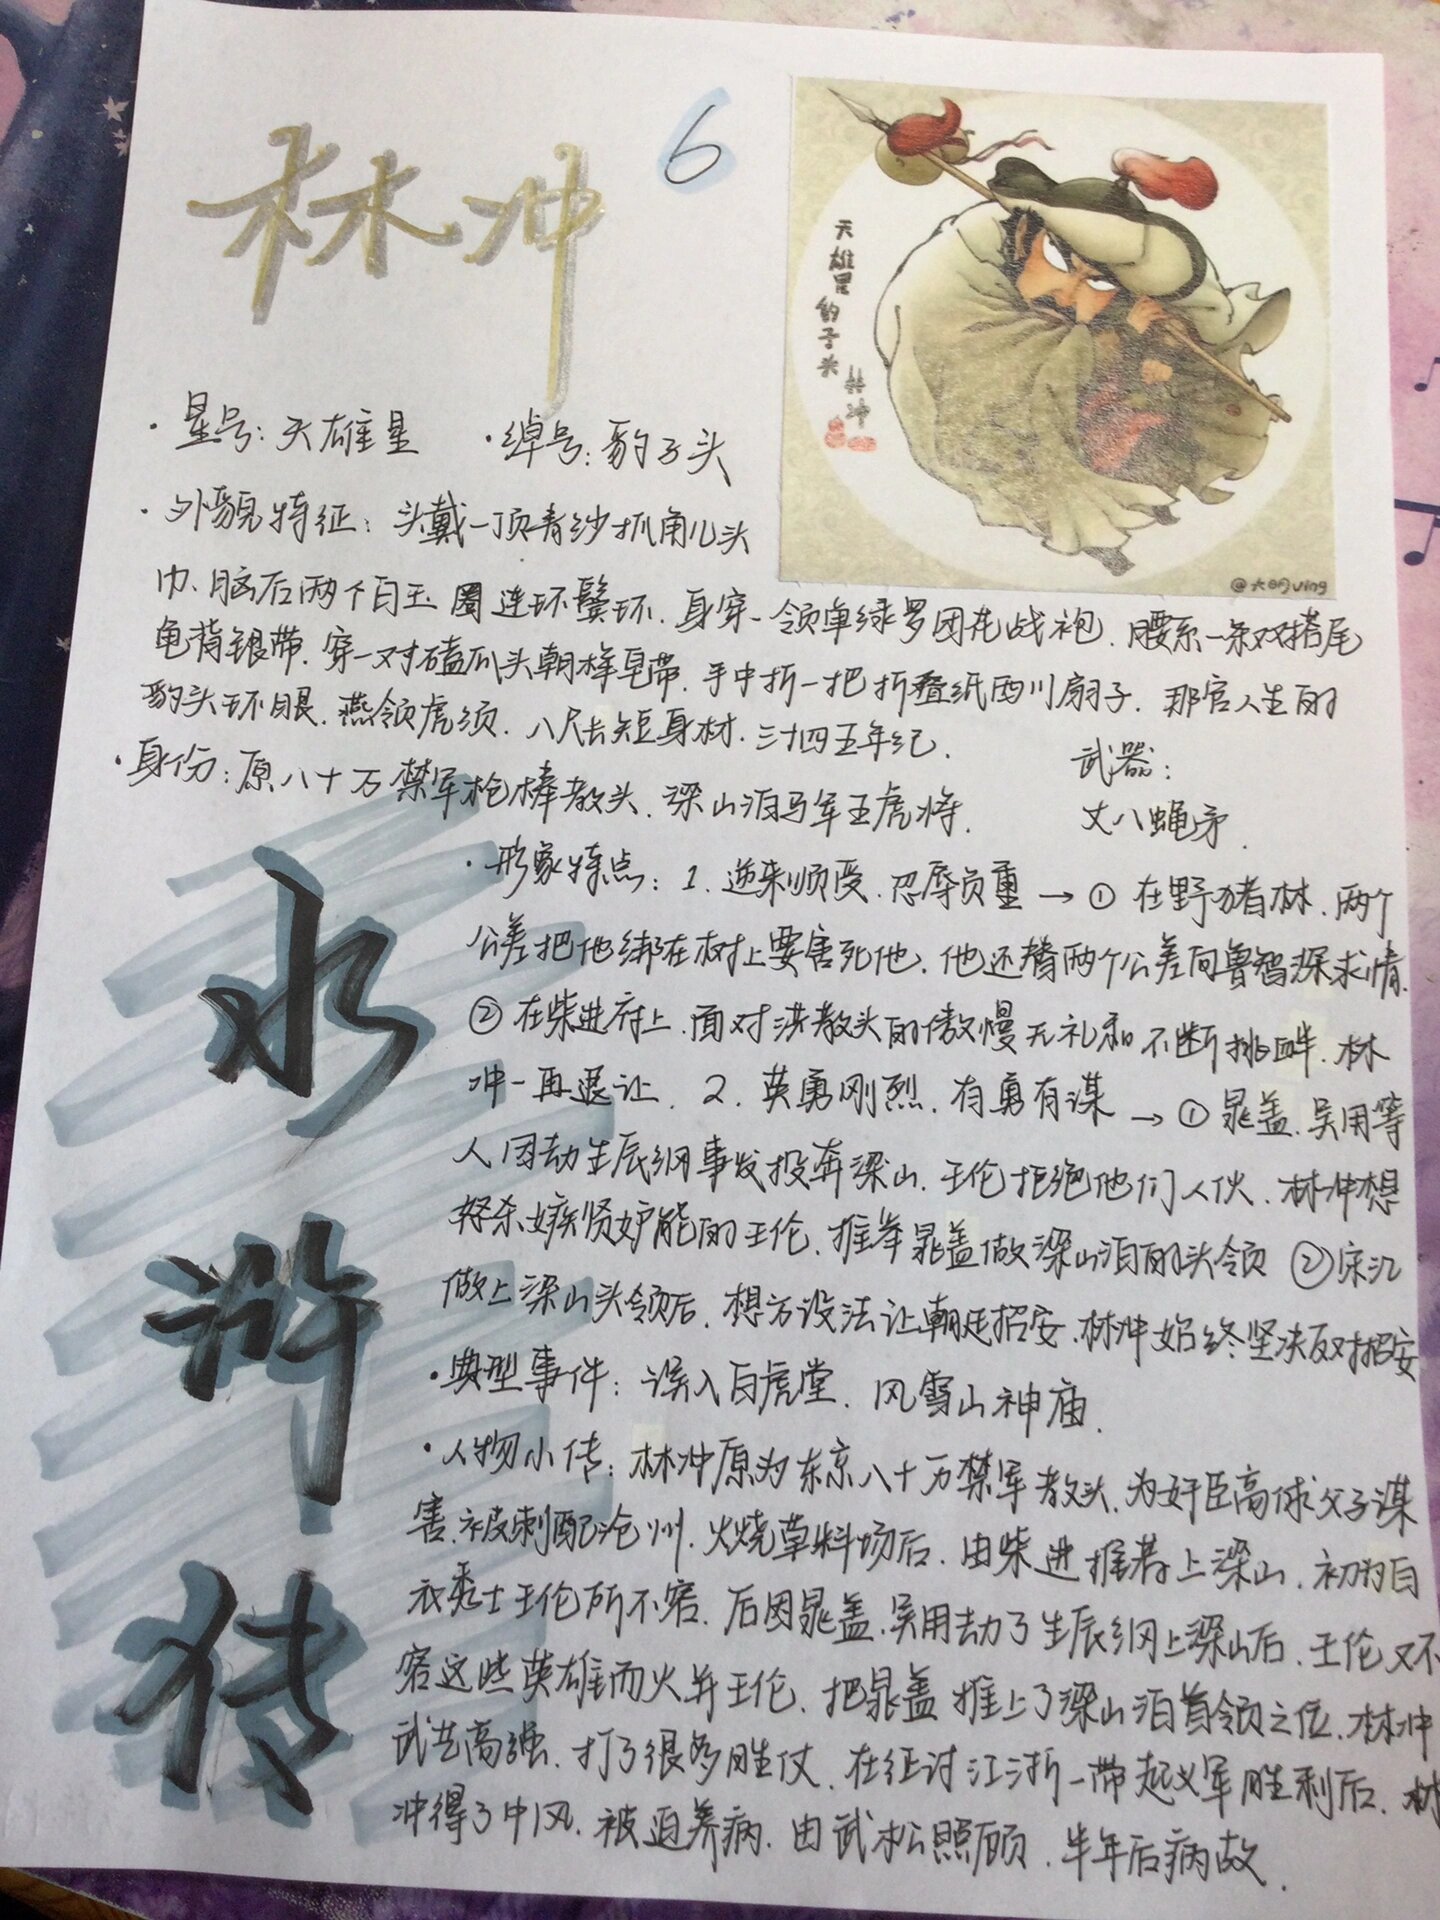 林冲
6
天雄星 豹子头 林冲
@大明ving
·星号:天雄星 ·绰号:豹子头
·外貌特征:头戴一顶青纱抓角儿头
巾、脑后两个白玉圈连环鬓环.身穿一领单绿罗团花战袍.腰系一条双搭尾
龟背银带.穿一对磕瓜头朝样皂带.手中折一把折叠纸西川扇子.那官人生的
豹头环眼.燕领虎须.八尺长短身材.三十四五年纪.
·身份:原八十万禁军枪棒教头.梁山泊马军五虎将.
武器:
丈八蛇矛.
·形象特点:1.逆来顺受.忍辱负重→①在野猪林.两个
公差把他绑在树上要害死他.他还替两个公差向鲁智深求情.
②在柴进府上.面对洪教头的傲慢无礼和不断挑衅.林
冲一再退让.2.英勇刚烈.有勇有谋→①晁盖.吴用等
人因劫生辰纲事发投奔梁山.王伦拒绝他们入伙.林冲想
怒杀嫉贤妒能的王伦.推举晁盖做梁山泊的头领②宋江
做上梁山头领后.想方设法让朝廷招安.林冲始终坚决反对招安
·典型事件:误入白虎堂.风雪山神庙.
·人物小传:林冲原为东京八十万禁军教头.为奸臣高俅父子谋
害.被刺配沧州.火烧草料场后.由柴进推荐上梁山.初为白
衣秀士王伦所不容.后因晁盖.吴用劫了生辰纲上梁山后.王伦又不
容这些英雄而火并王伦.把晁盖推上了梁山泊首领之位.林冲
武艺高强.打了很多胜仗.在征讨江浙一带起义军胜利后.林
冲得了中风.被迫养病.由武松照顾.半年后病故.
水浒传